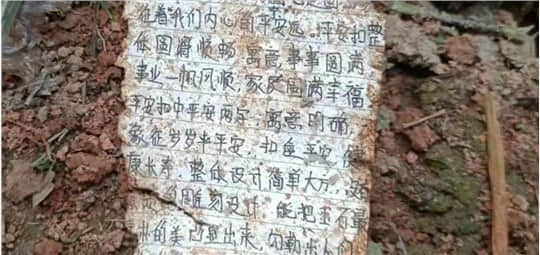 征着我们内心的平安远。平安扣整
体圆滑顺畅,寓意事事圆满
事业一帆风顺,家庭圆满幸福
平安扣中平安两字,寓意明确,
象征岁岁平安,扣住平安,健
康长寿。整体设计简单大方,
周身刻设计,能把玉石最
的美凸显出来,勾勒出人们